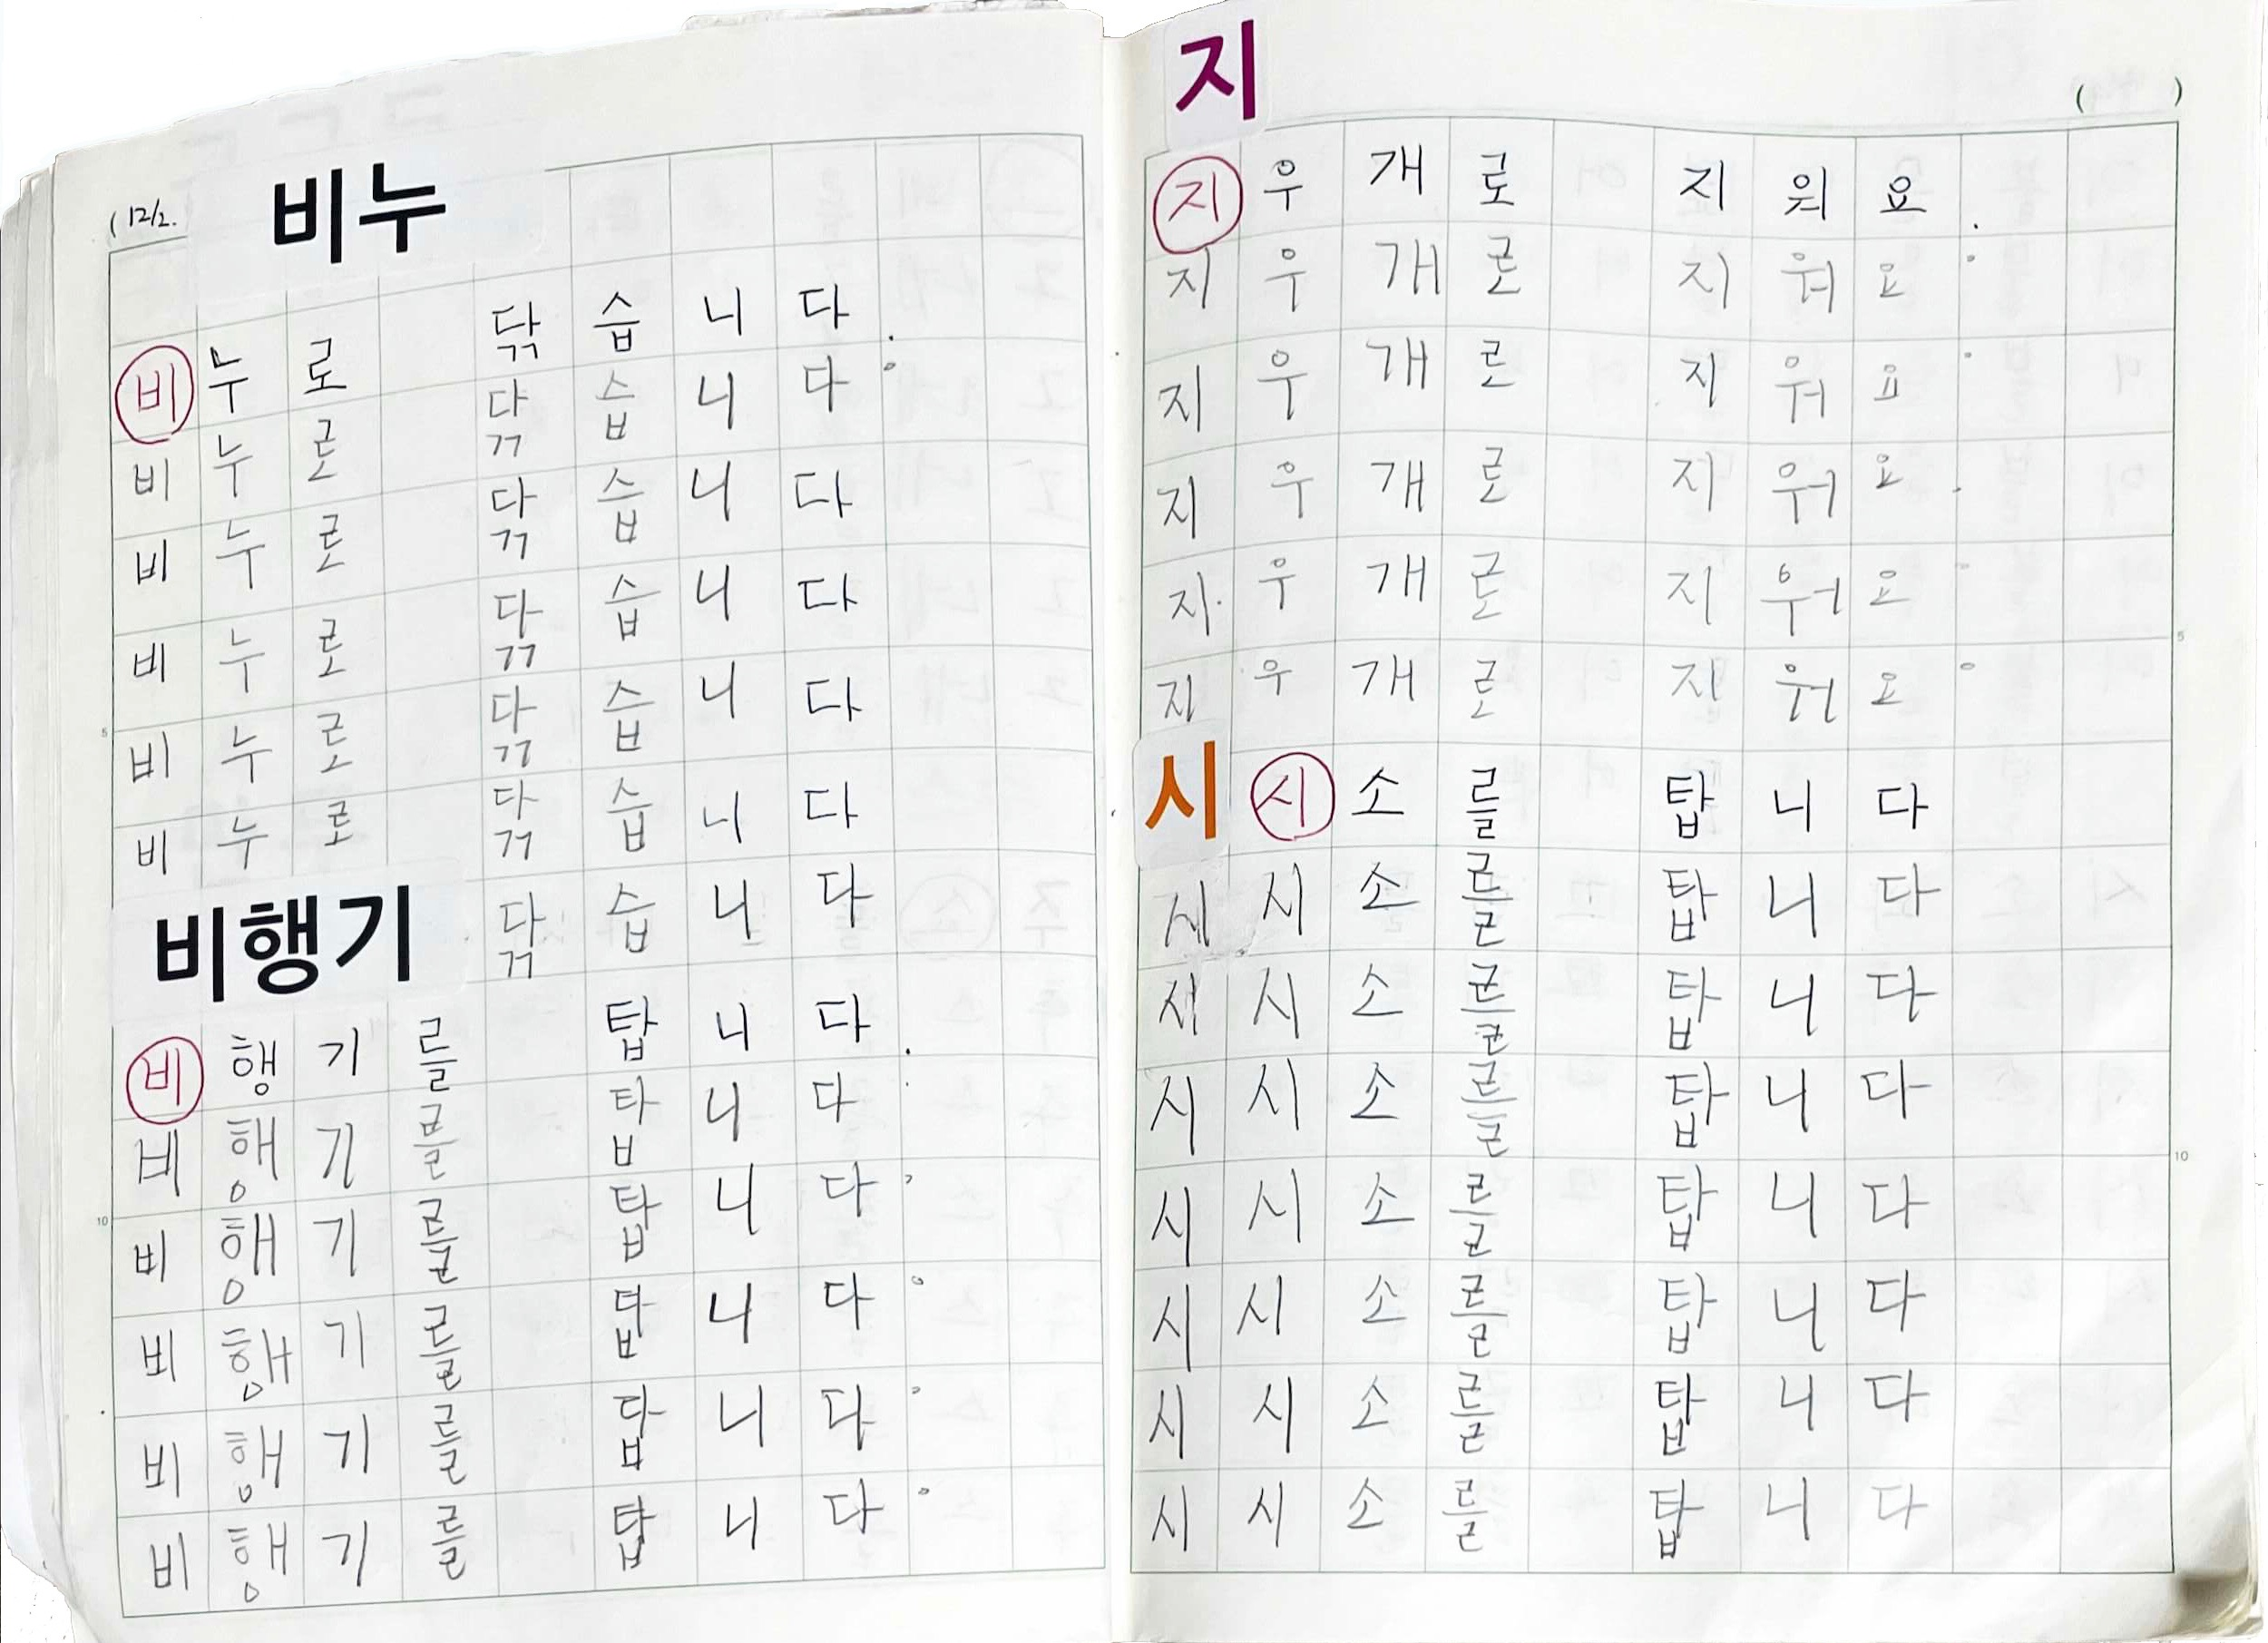 (12/2.
비누
비누로 닦습니다.
비누로 닦습니다.
비누로 닦습니다
비누로 닦습니다
비누로 닦습니다
비누로 닦습니다
비행기 닦습니다
비행기를 탑니다.
비행기를 탑니다.
비행기를 탑니다.
비행기를 탑니다.
비행기를 탑니다.
비행기를 탑니다.
5
10
지
( )
지우개로 지워요.
지우개로 지워요.
지우개로 지워요.
지우개로 지워요.
지우개로 지워요.
지우개로 지워요.
시 시소를 탑니다
시시소를 탑니다
시시소를 탑니다
시시소를 탑니다
시시소를 탑니다
시시소를 탑니다
시시소를 탑니다
시시소를 탑니다
5
10